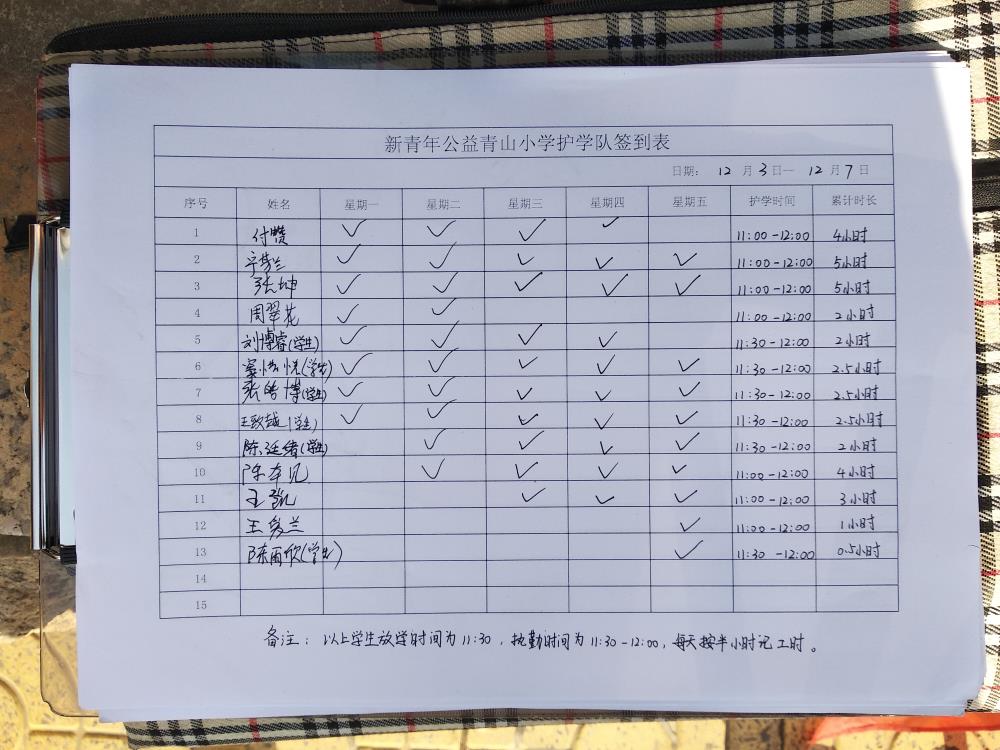 新青年公益青山小学护学队签到表
日期: 12 月 3 日— 12 月 7 日
序号 姓名 星期一 星期二 星期三 星期四 星期五 护学时间 累计时长
1 付赞 ✓ ✓ ✓ ✓ 11:00-12:00 4小时
2 ✓ ✓ ✓ ✓ ✓ 11:00-12:00 5小时
3 张坤 ✓ ✓ ✓ ✓ ✓ 11:00-12:00 5小时
4 周翠花 ✓ ✓ 11:00-12:00 2小时
5 刘博睿(学生) ✓ ✓ ✓ ✓ 11:30-12:00 2小时
6 (学生) ✓ ✓ ✓ ✓ ✓ 11:30-12:00 2.5小时
7 张皓博(学生) ✓ ✓ ✓ ✓ ✓ 11:30-12:00 2.5小时
8 王致越(学生) ✓ ✓ ✓ ✓ ✓ 11:30-12:00 2.5小时
9 陈廷绪(学生) ✓ ✓ ✓ ✓ 11:30-12:00 2小时
10 ✓ ✓ ✓ ✓ 11:00-12:00 4小时
11 王凯 ✓ ✓ ✓ 11:00-12:00 3小时
12 ✓ 11:00-12:00 1小时
13 陈雨欣(学生) ✓ 11:30-12:00 0.5小时
14
15
备注: 以上学生放学时间为11:30,执勤时间为11:30-12:00,每天按半小时记工时。